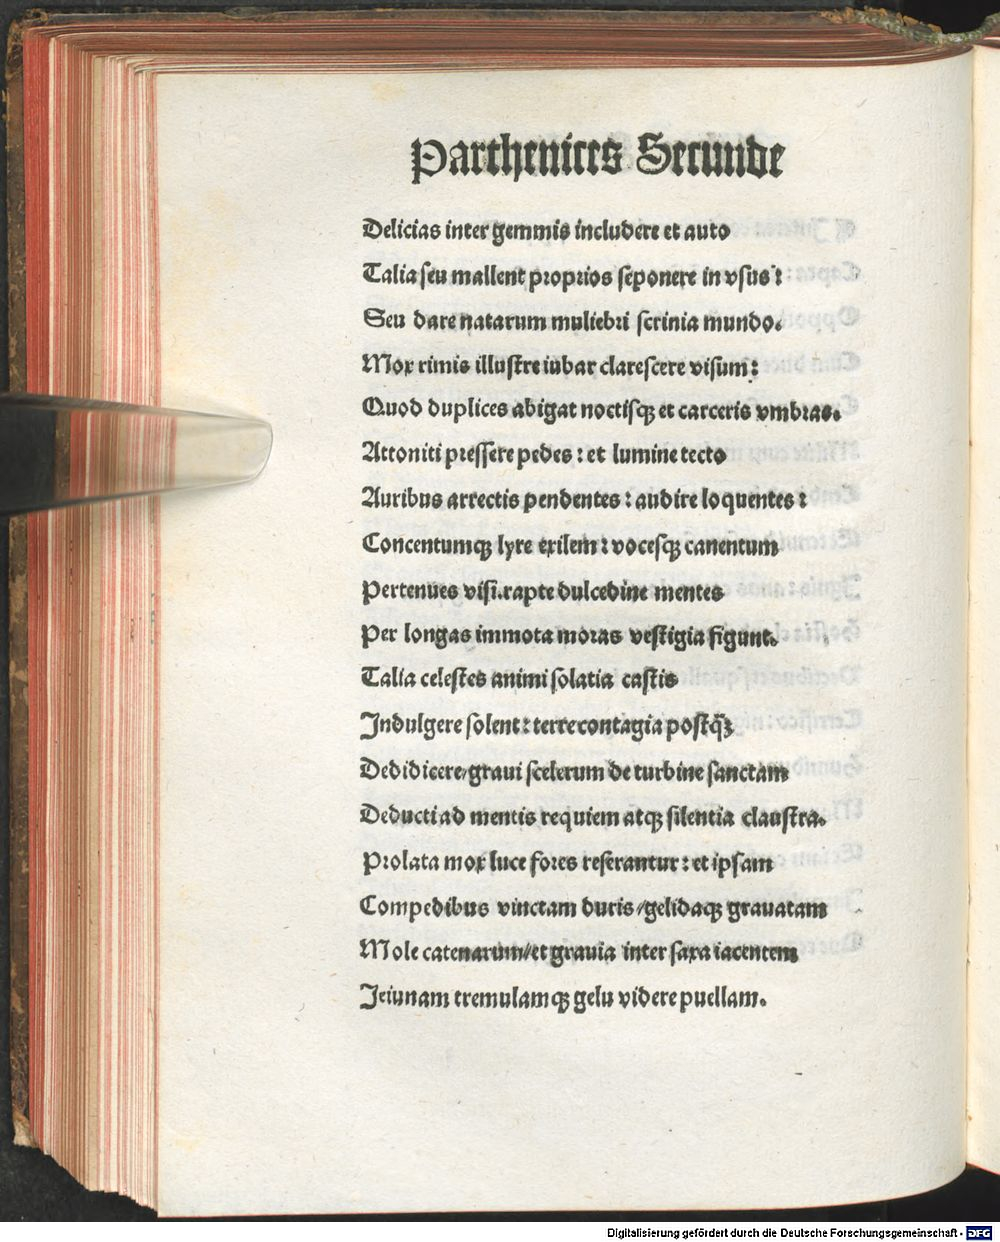 Parthenices Secunde
Delicias inter gemmis includere et auto
Talia seu mallent proprios seponere in vsus:
Seu dare natarum muliebri scrinia mundo.
Mox rimis illustre iubar clarescere visum:
Quod duplices abigat noctisqꝫ et carceris vmbras.
Attoniti pressere pedes: et lumine tecto
Auribus arrectis pendentes: audire loquentes:
Concentumqꝫ lyre exilem: vocesqꝫ canentum
Pertenues visi.rapte dulcedine mentes
Per longas immota moras vestigia figunt.
Talia celestes animi solatia castis
Indulgere solent: terre contagia postq̄ꝫ
Dedidicere/graui scelerum de turbine sanctam
Deducti ad mentis requiem atqꝫ silentia claustra.
Prolata mox luce fores reserantur: et ipsam
Compedibus vinctam duris/gelidaqꝫ grauatam
Mole catenarum/et grauia inter saxa iacentem
Ieiunam tremulamqꝫ gelu videre puellam.
Digitalisierung gefördert durch die Deutsche Forschungsgemeinschaft - DFG